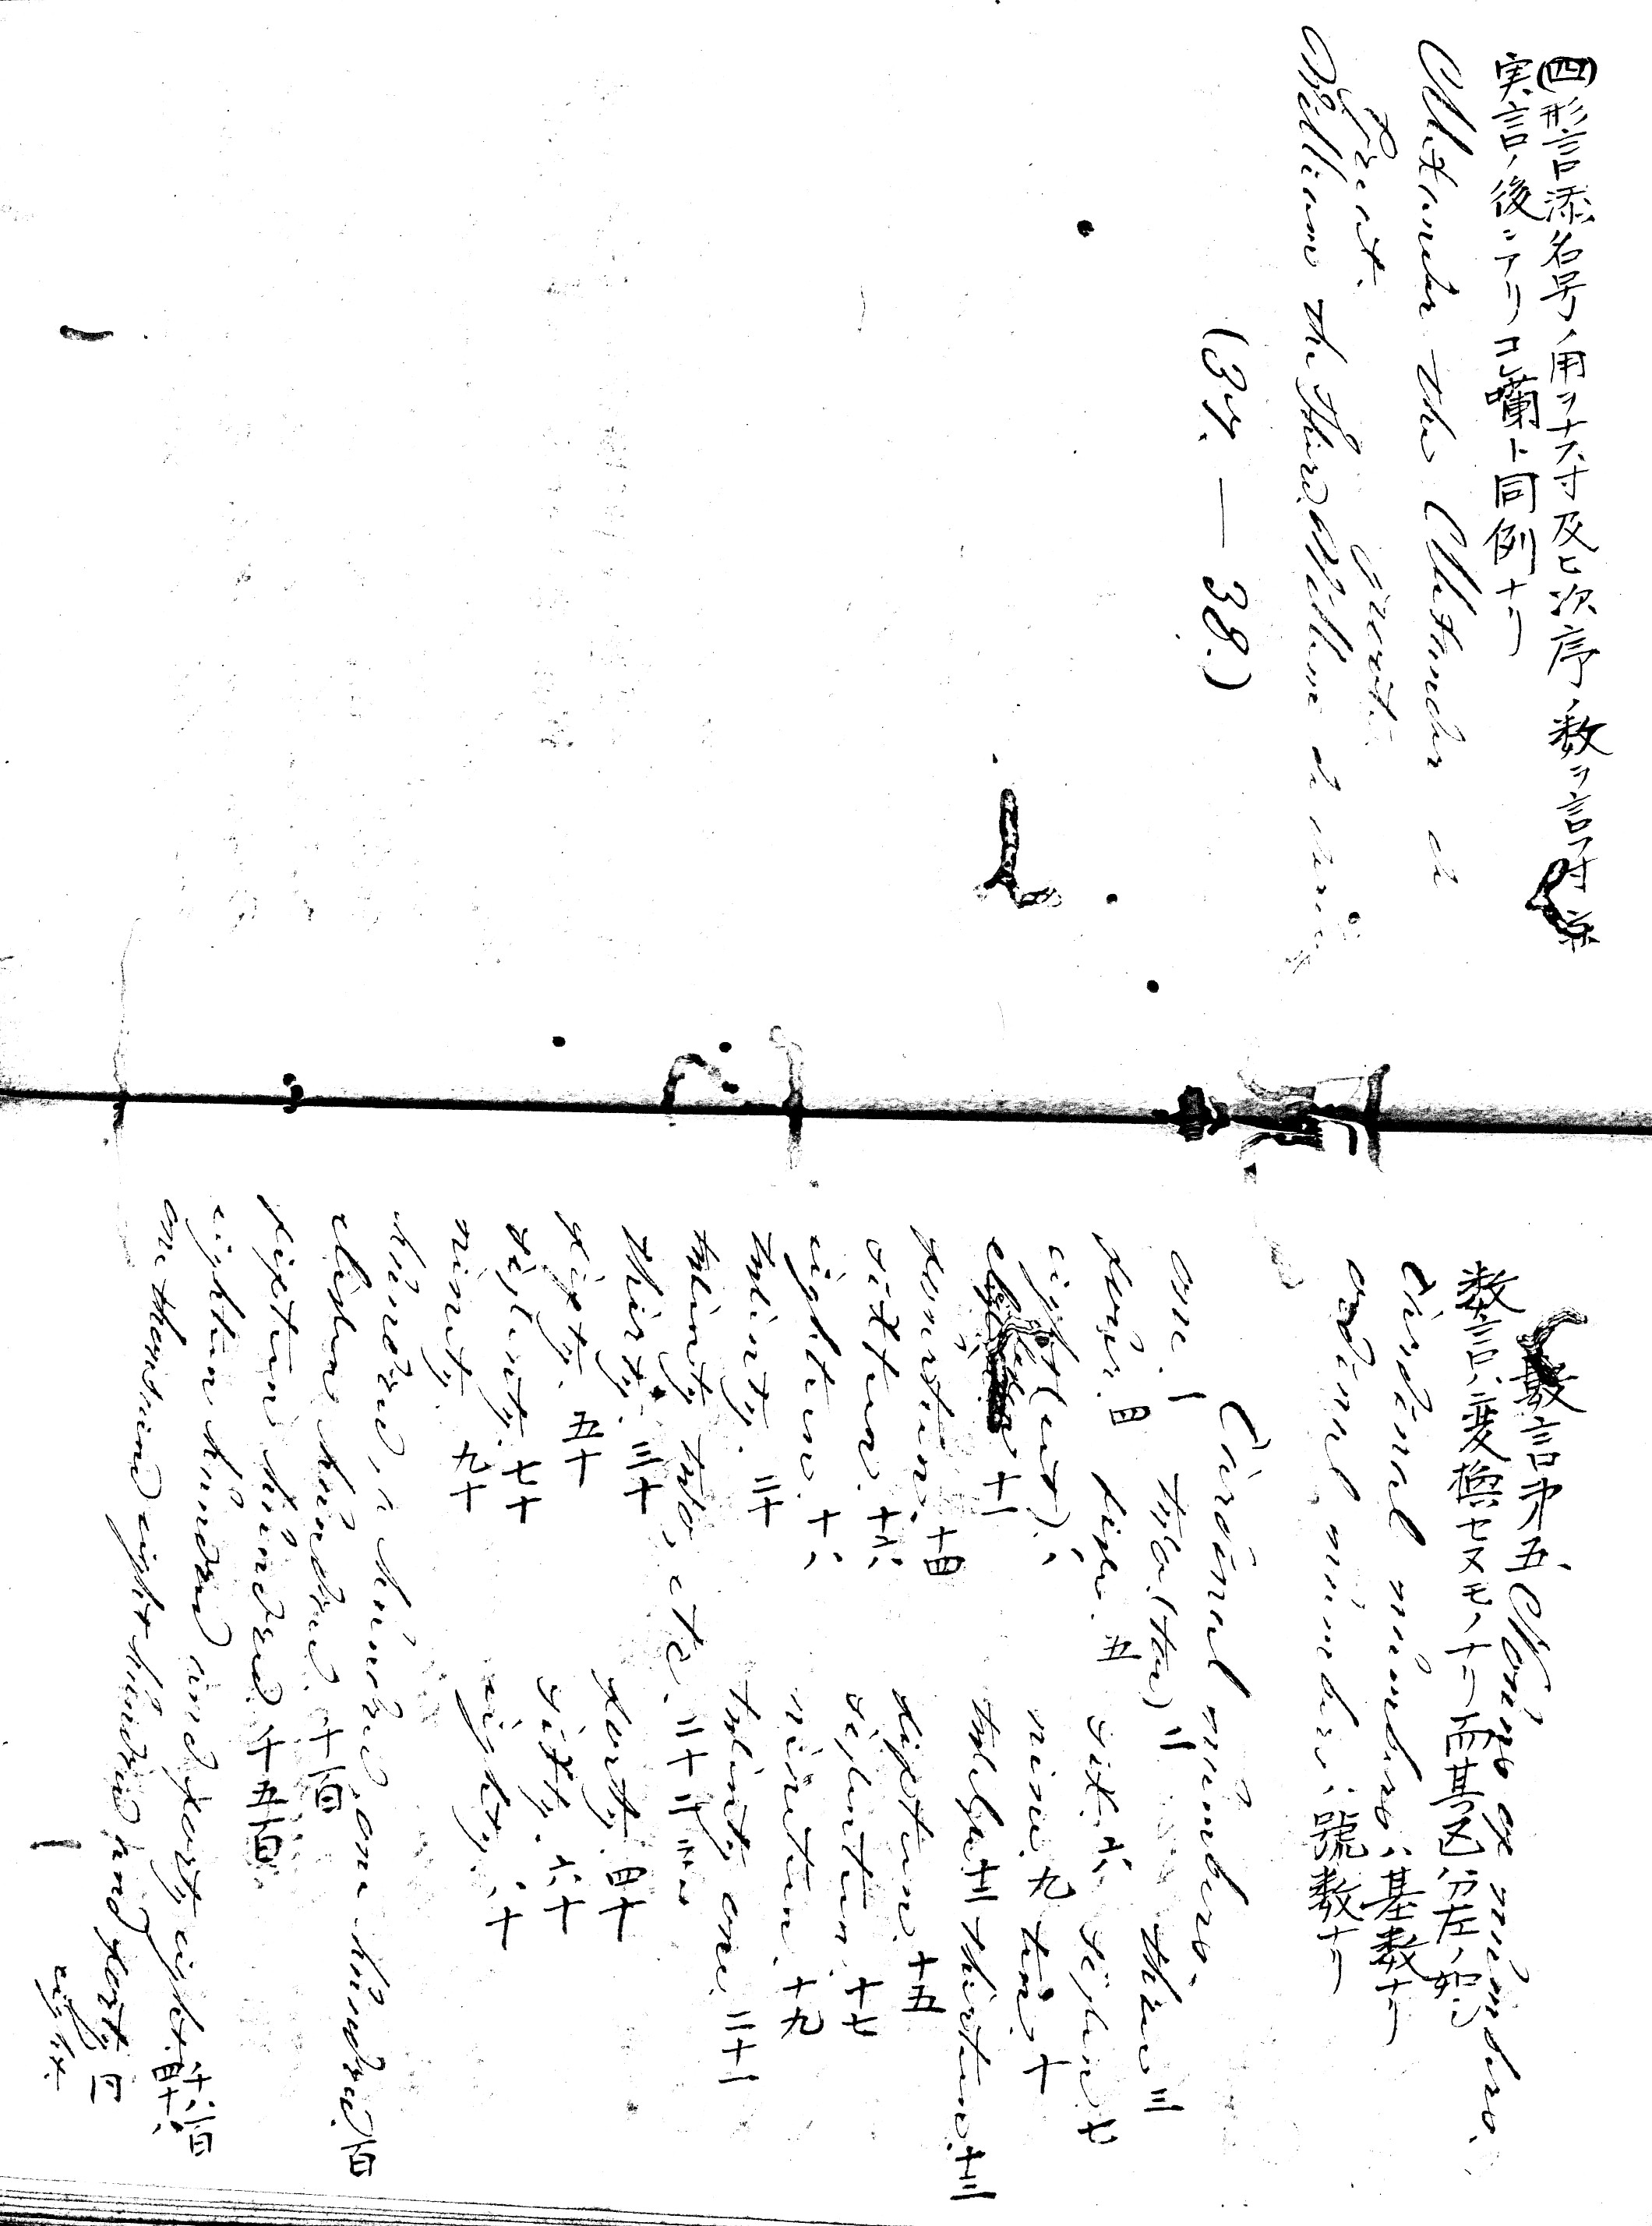 (四)形言添名号ノ用ヲナス寸及ヒ次序ノ数ヲ言フ寸ハ
実言ノ後ニアリコレ嘴蘭ト同例ナリ
Alexander the Alexander de
Great. groote.
William the Third. Willem de
(37. — 38.)
数言第五 Nouns of numbers.
数言ハ変換セヌモノナリ而其区分左ノ如シ
Cardinal numbers ハ基数ナリ
ordinal numbers ハ號数ナリ
Cardinal numbers.
one. 一 two. (tu) 二 three 三
four. 四 five. 五 six. 六 seven 七
eight (eet) 八 nine. 九 ten. 十
eleven 十一 twelve 十二 thirteen. 十三
fourteen. 十四 fifteen. 十五
sixteen. 十六 seventeen. 十七
eighteen. 十八 nineteen. 十九
twenty. 二十 twenty one. 二十一
twenty two, etc. 二十二
thirty. 三十 forty. 四十
fifty. 五十 sixty. 六十
seventy. 七十 eighty. 八十
ninety. 九十
hundred, a hundred, one hundred. 百
eleven hundred. 千百
fifteen hundred 千五百
eighteen hundred and forty eight. 千八百四十八
one thousand eight hundred and forty eight. 同